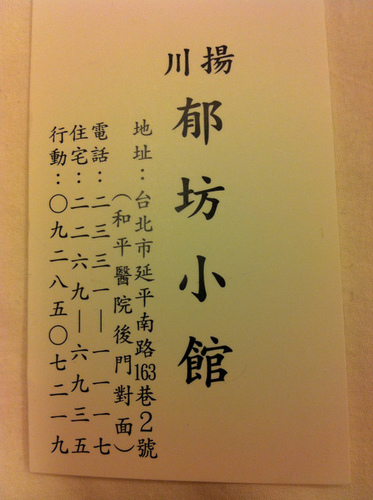 川揚
郁坊小館
地址：台北市延平南路163巷2號
（和平醫院後門對面）
電話：二三三一｜一一一七
住宅：二二六九｜六九三五
行動：〇九二八五〇七二一九